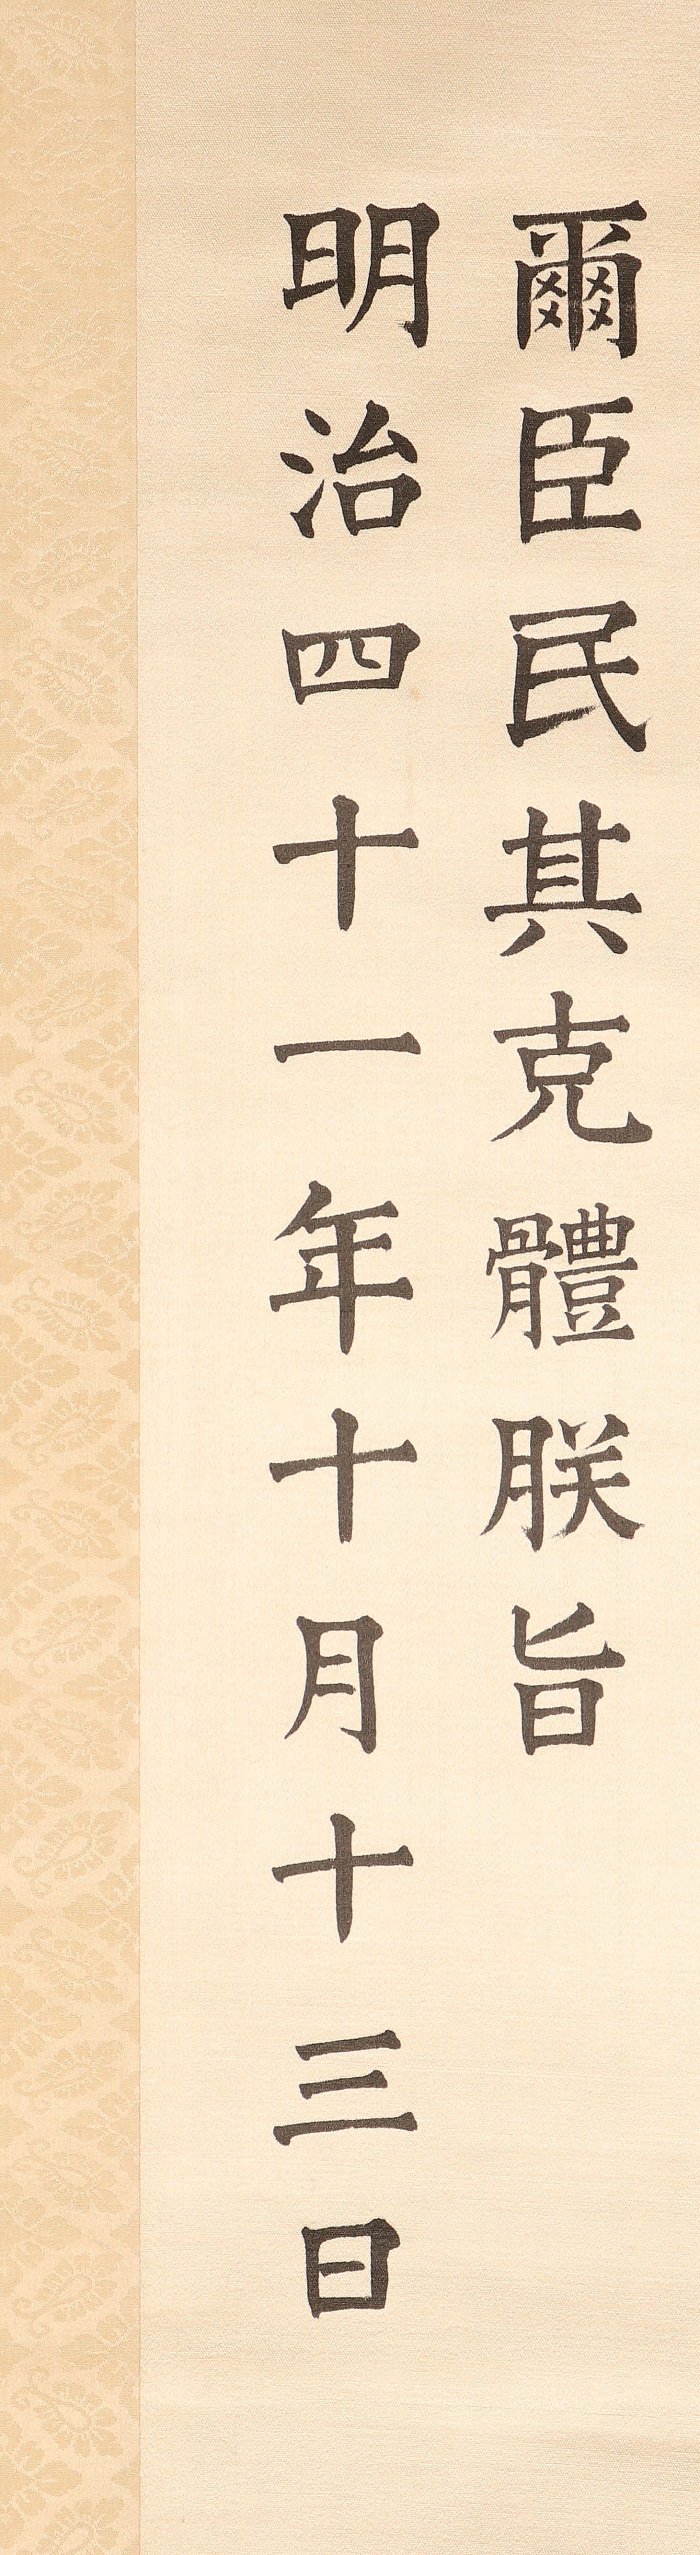 爾臣民其克體朕旨
明治四十一年十月十三日